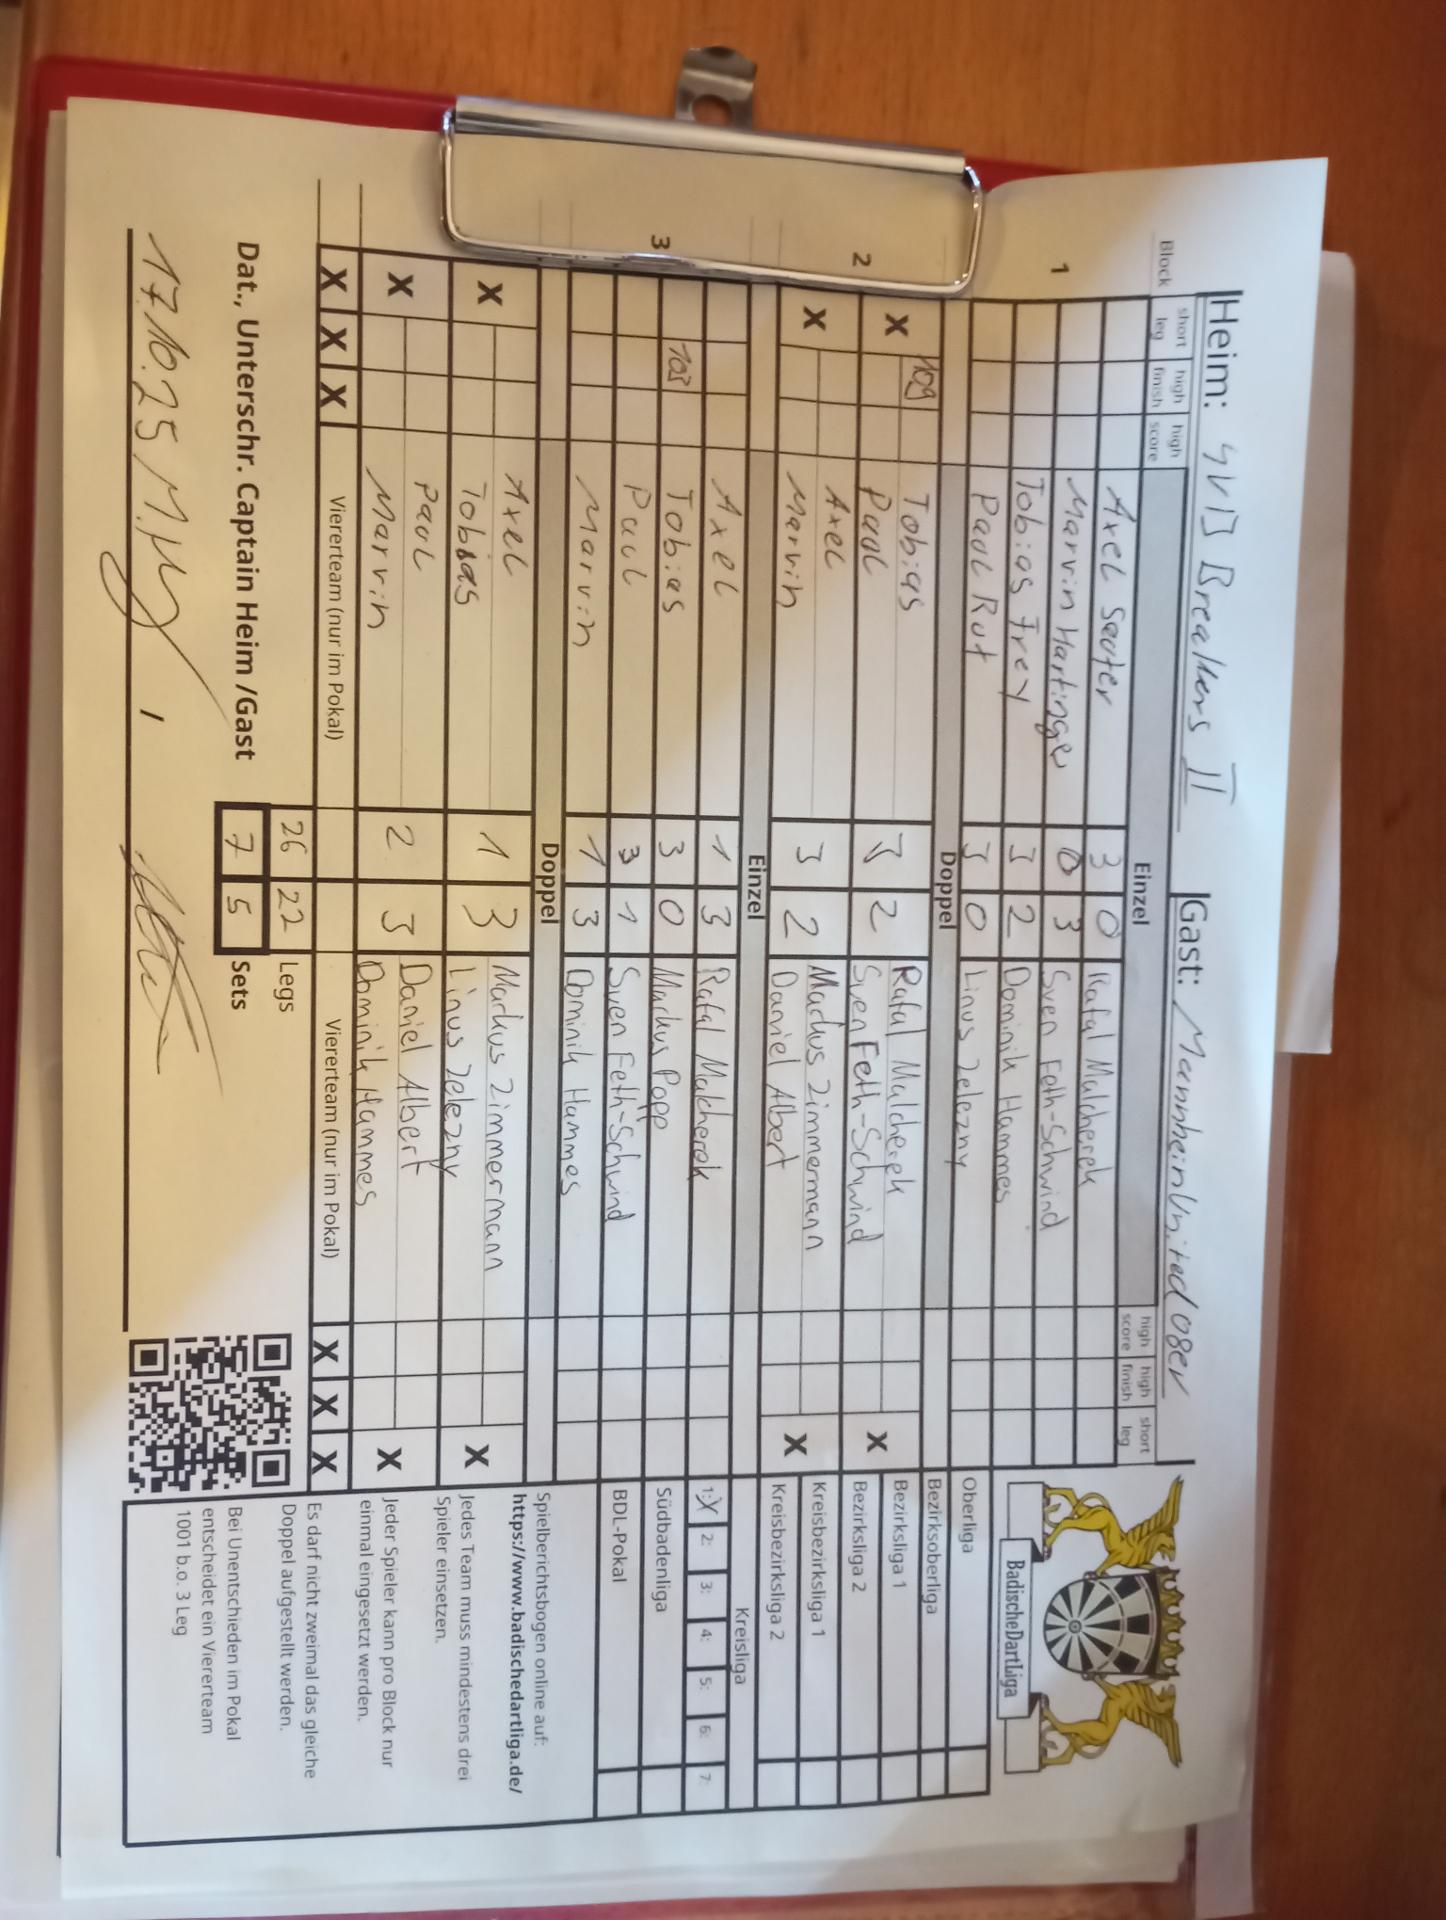 Heim: SVD Breakers II Gast: Mannheim United 08er
Block short leg high finish high score Einzel high score high finish short leg
1
Axel Sauter 3 0 Rafal Malcherek
Marvin Hartinger 0 3 Sven Feth-Schwind
Tobias Frey 3 2 Dominik Hammes
Paul Rut 3 0 Linus Zelezny
Doppel
2
X 109 Tobias 3 2 Rafal Malcherek X
Paul Sven Feth-Schwind
X Axel 3 2 Markus Zimmermann X
Marvin Daniel Albert
Einzel
3
Axel 1 3 Rafal Malcherek
103 Tobias 3 0 Markus Popp
Paul 3 1 Sven Feth-Schwind
Marvin 1 3 Dominik Hammes
Doppel
X Axel 1 3 Markus Zimmermann X
Tobias Linus Zelezny
X Paul 2 3 Daniel Albert X
Marvin Dominik Hammes
X X X Viererteam (nur im Pokal) Viererteam (nur im Pokal) X X X
26 22 Legs
Dat., Unterschr. Captain Heim /Gast 7 5 Sets
17.10.25 /
BadischeDartLiga
Oberliga
Bezirksoberliga
Bezirksliga 1
Bezirksliga 2
Kreisbezirksliga 1
Kreisbezirksliga 2
Kreisliga
1: X 2: 3: 4: 5: 6: 7:
Südbadenliga
BDL-Pokal
Spielberichtsbogen online auf:
https://www.badischedartliga.de/
Jedes Team muss mindestens drei
Spieler einsetzen.
Jeder Spieler kann pro Block nur
einmal eingesetzt werden.
Es darf nicht zweimal das gleiche
Doppel aufgestellt werden.
Bei Unentschieden im Pokal
entscheidet ein Viererteam
1001 b.o. 3 Leg